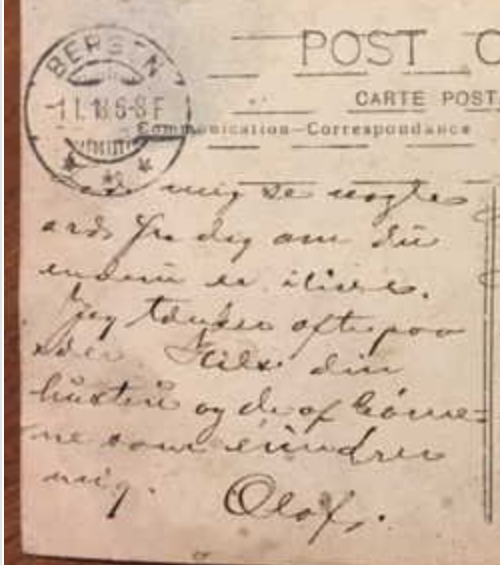 BERGEN
11.18 6-8 F
POST C
CARTE POST
Communication—Correspondance
Lad mig se nogle
ord fra dig om du
endnu er ilive.
Jeg tænker ofte paa
eder. Hils din
hustru og de af börne=
ne som erindrer
mig.
Olaf.